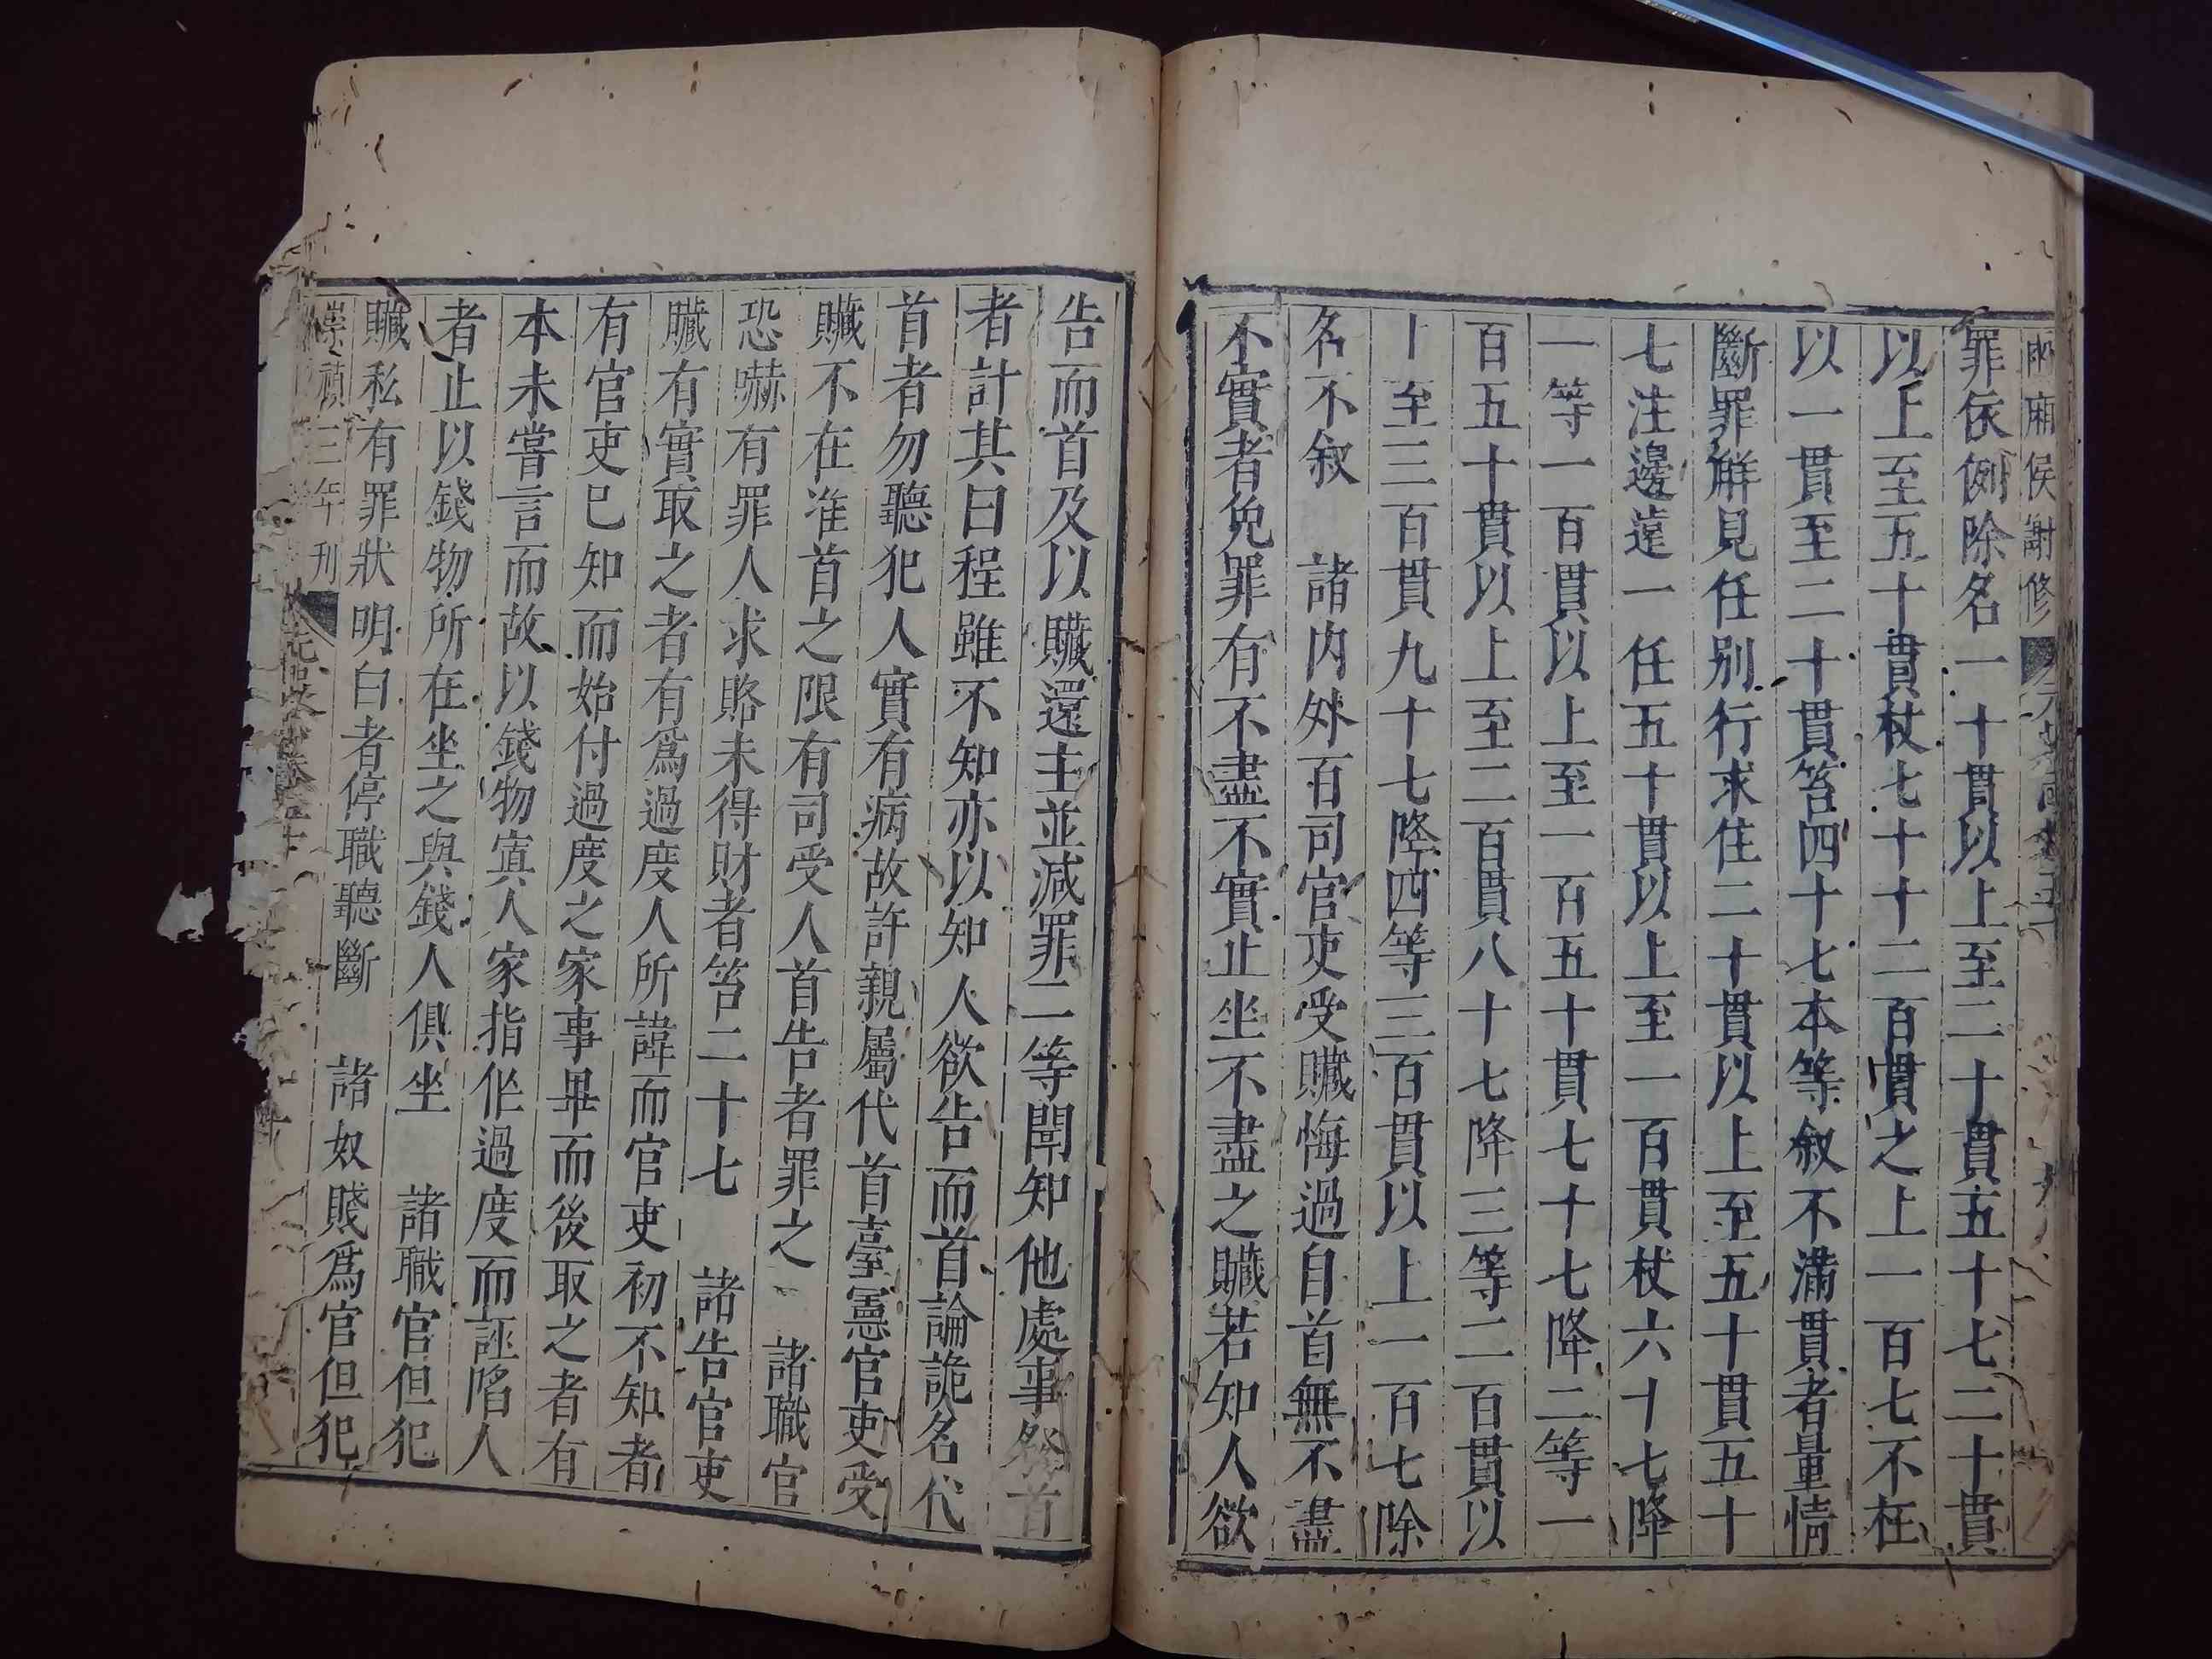 兩廂侯謝修
罪依例除名一十貫以上至二十貫五十七二十貫
以上至五十貫杖七十十二百貫之上一百七不在
以一貫至二十貫笞四十七本等叙不滿貫者量情
斷罪觧見任别行求住二十貫以上至五十貫五十
七注邊遠一任五十貫以上至一百貫杖六十七降
一等一百貫以上至一百五十貫七十七降二等一
百五十貫以上至二百貫八十七降三等二百貫以
十至三百貫九十七降四等三百貫以上一百七除
名不叙 諸内外百司官吏受贓悔過自首無不盡
不實者免罪有不盡不實止坐不盡之贓若知人欲
告而首及以贓還主並減罪二等聞知他處事發首
者計其日程雖不知亦以知人欲告而首論詭名代
首者勿聽犯人實有病故許親屬代首臺憲官吏受
贓不在准首之限有司受人首告者罪之 諸職官
恐嚇有罪人求賂未得財者笞二十七 諸告官吏
贓有實取之者有爲過度人所諱而官吏初不知者
有官吏已知而始付過度之家事畢而後取之者有
本未嘗言而故以錢物寘人家指作過度而誣陷人
者止以錢物所在坐之與錢人俱坐 諸職官但犯
贓私有罪狀明白者停職聽斷 諸奴賤爲官但犯
崇禎三年刊